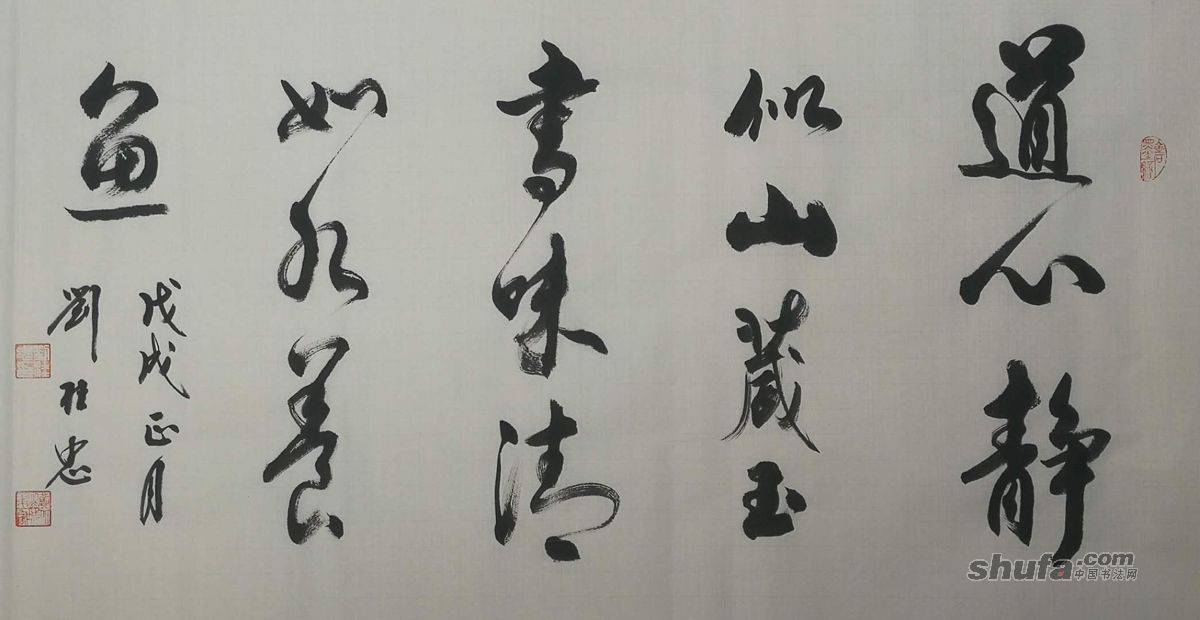 道心静
似山藏玉
書味清
如水養
魚
戊戌正月
劉社忠
shufa.com
中国书法网